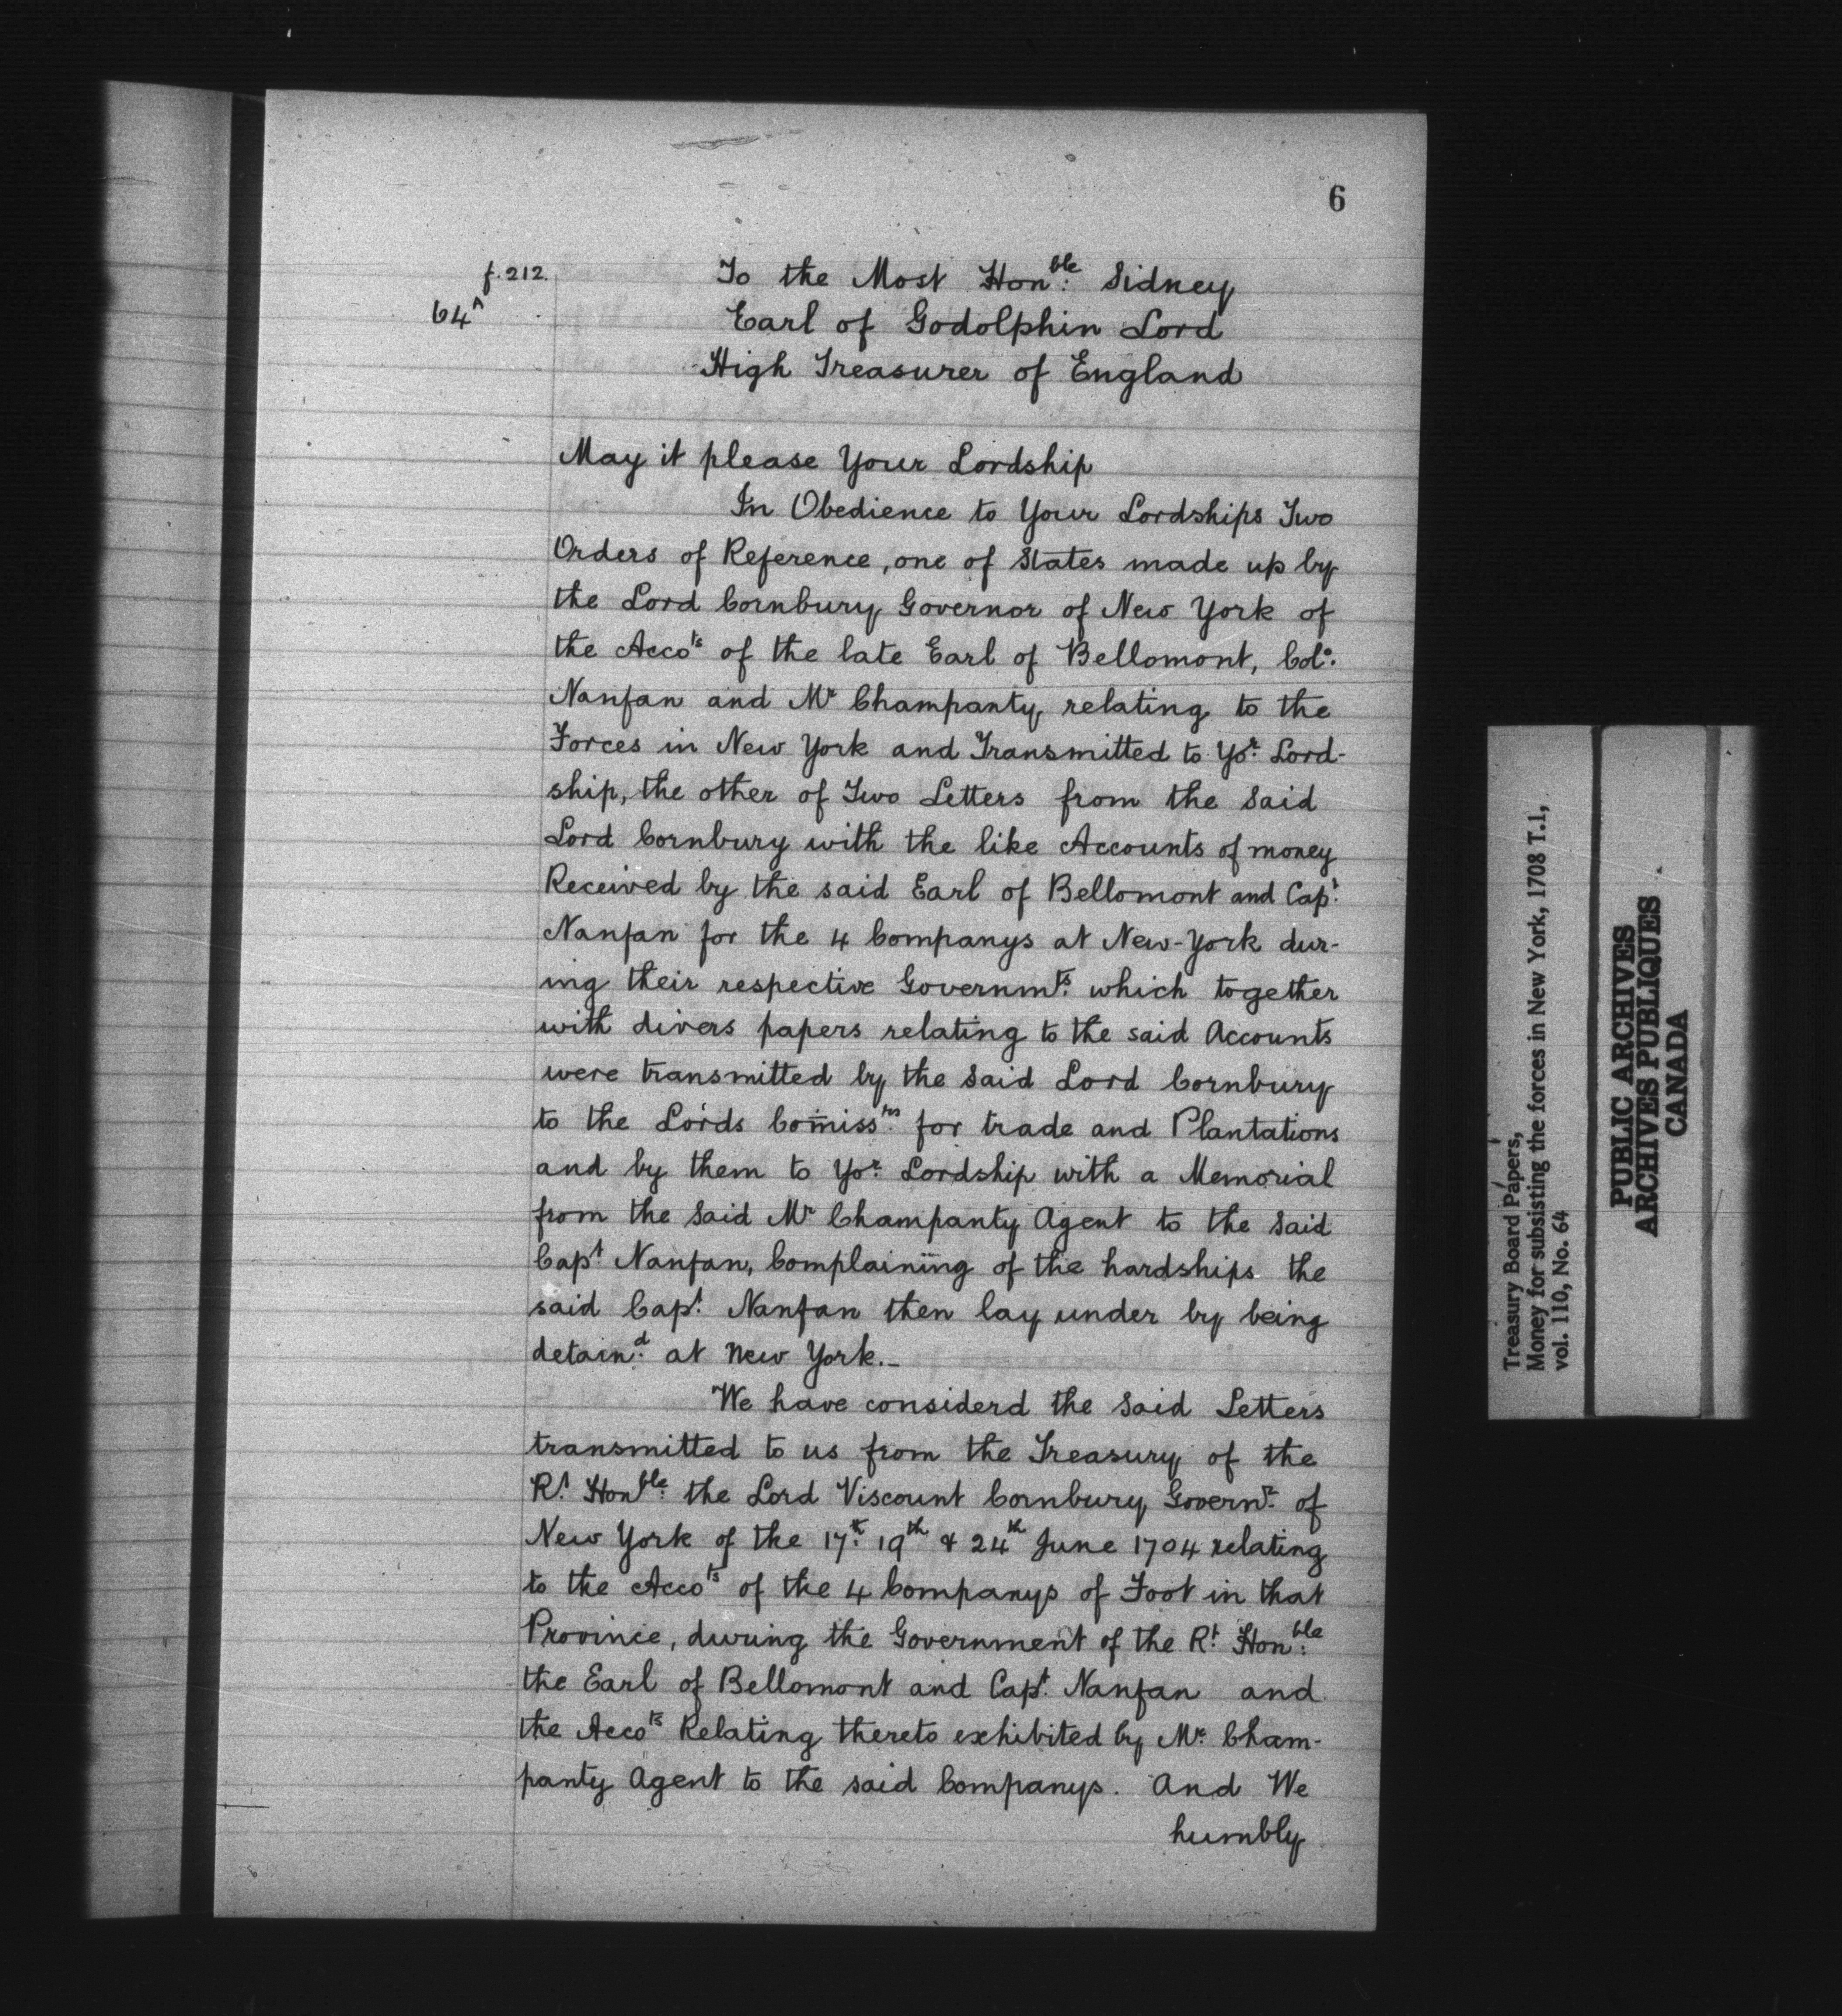 6
f.212.
64^A
To the Most Hon^ble: Sidney
Earl of Godolphin Lord
High Treasurer of England
May it please Your Lordship
In Obedience to Your Lordships Two
Orders of Reference, one of States made up by
the Lord Cornbury Governor of New York of
the Acco^ts of the late Earl of Bellomont, Col^o:
Nanfan and M^r Champanty relating to the
Forces in New York and Transmitted to Yo^r: Lord-
ship, the other of Two Letters from the said
Lord Cornbury with the like Accounts of money
Received by the said Earl of Bellomont and Cap^t:
Nanfan for the 4 Companys at New-York dur-
ing their respective Governm^ts: which together
with divers papers relating to the said Accounts
were transmitted by the said Lord Cornbury
to the Lords Com̄iss^rs: for trade and Plantations
and by them to Yo^r: Lordship with a Memorial
from the said M^r Champanty Agent to the said
Cap^t Nanfan, Complaining of the hardships the
said Cap^t: Nanfan then lay under by being
detain^d: at New York._
We have considerd the said Letters
transmitted to us from the Treasury of the
R^t: Hon^ble: the Lord Viscount Cornbury Govern^r: of
New York of the 17^th: 19^th & 24^th June 1704 relating
to the Acco^ts of the 4 Companys of Foot in that
Province, during the Government of the R^t: Hon^ble:
the Earl of Bellomont and Cap^t: Nanfan and
the Acco^ts Relating thereto exhibited by M^r: Cham-
panty Agent to the said Companys. And We
humbly
Treasury Board Papers,
Money for subsisting the forces in New York, 1708 T.1,
vol. 110, No. 64
PUBLIC ARCHIVES
ARCHIVES PUBLIQUES
CANADA